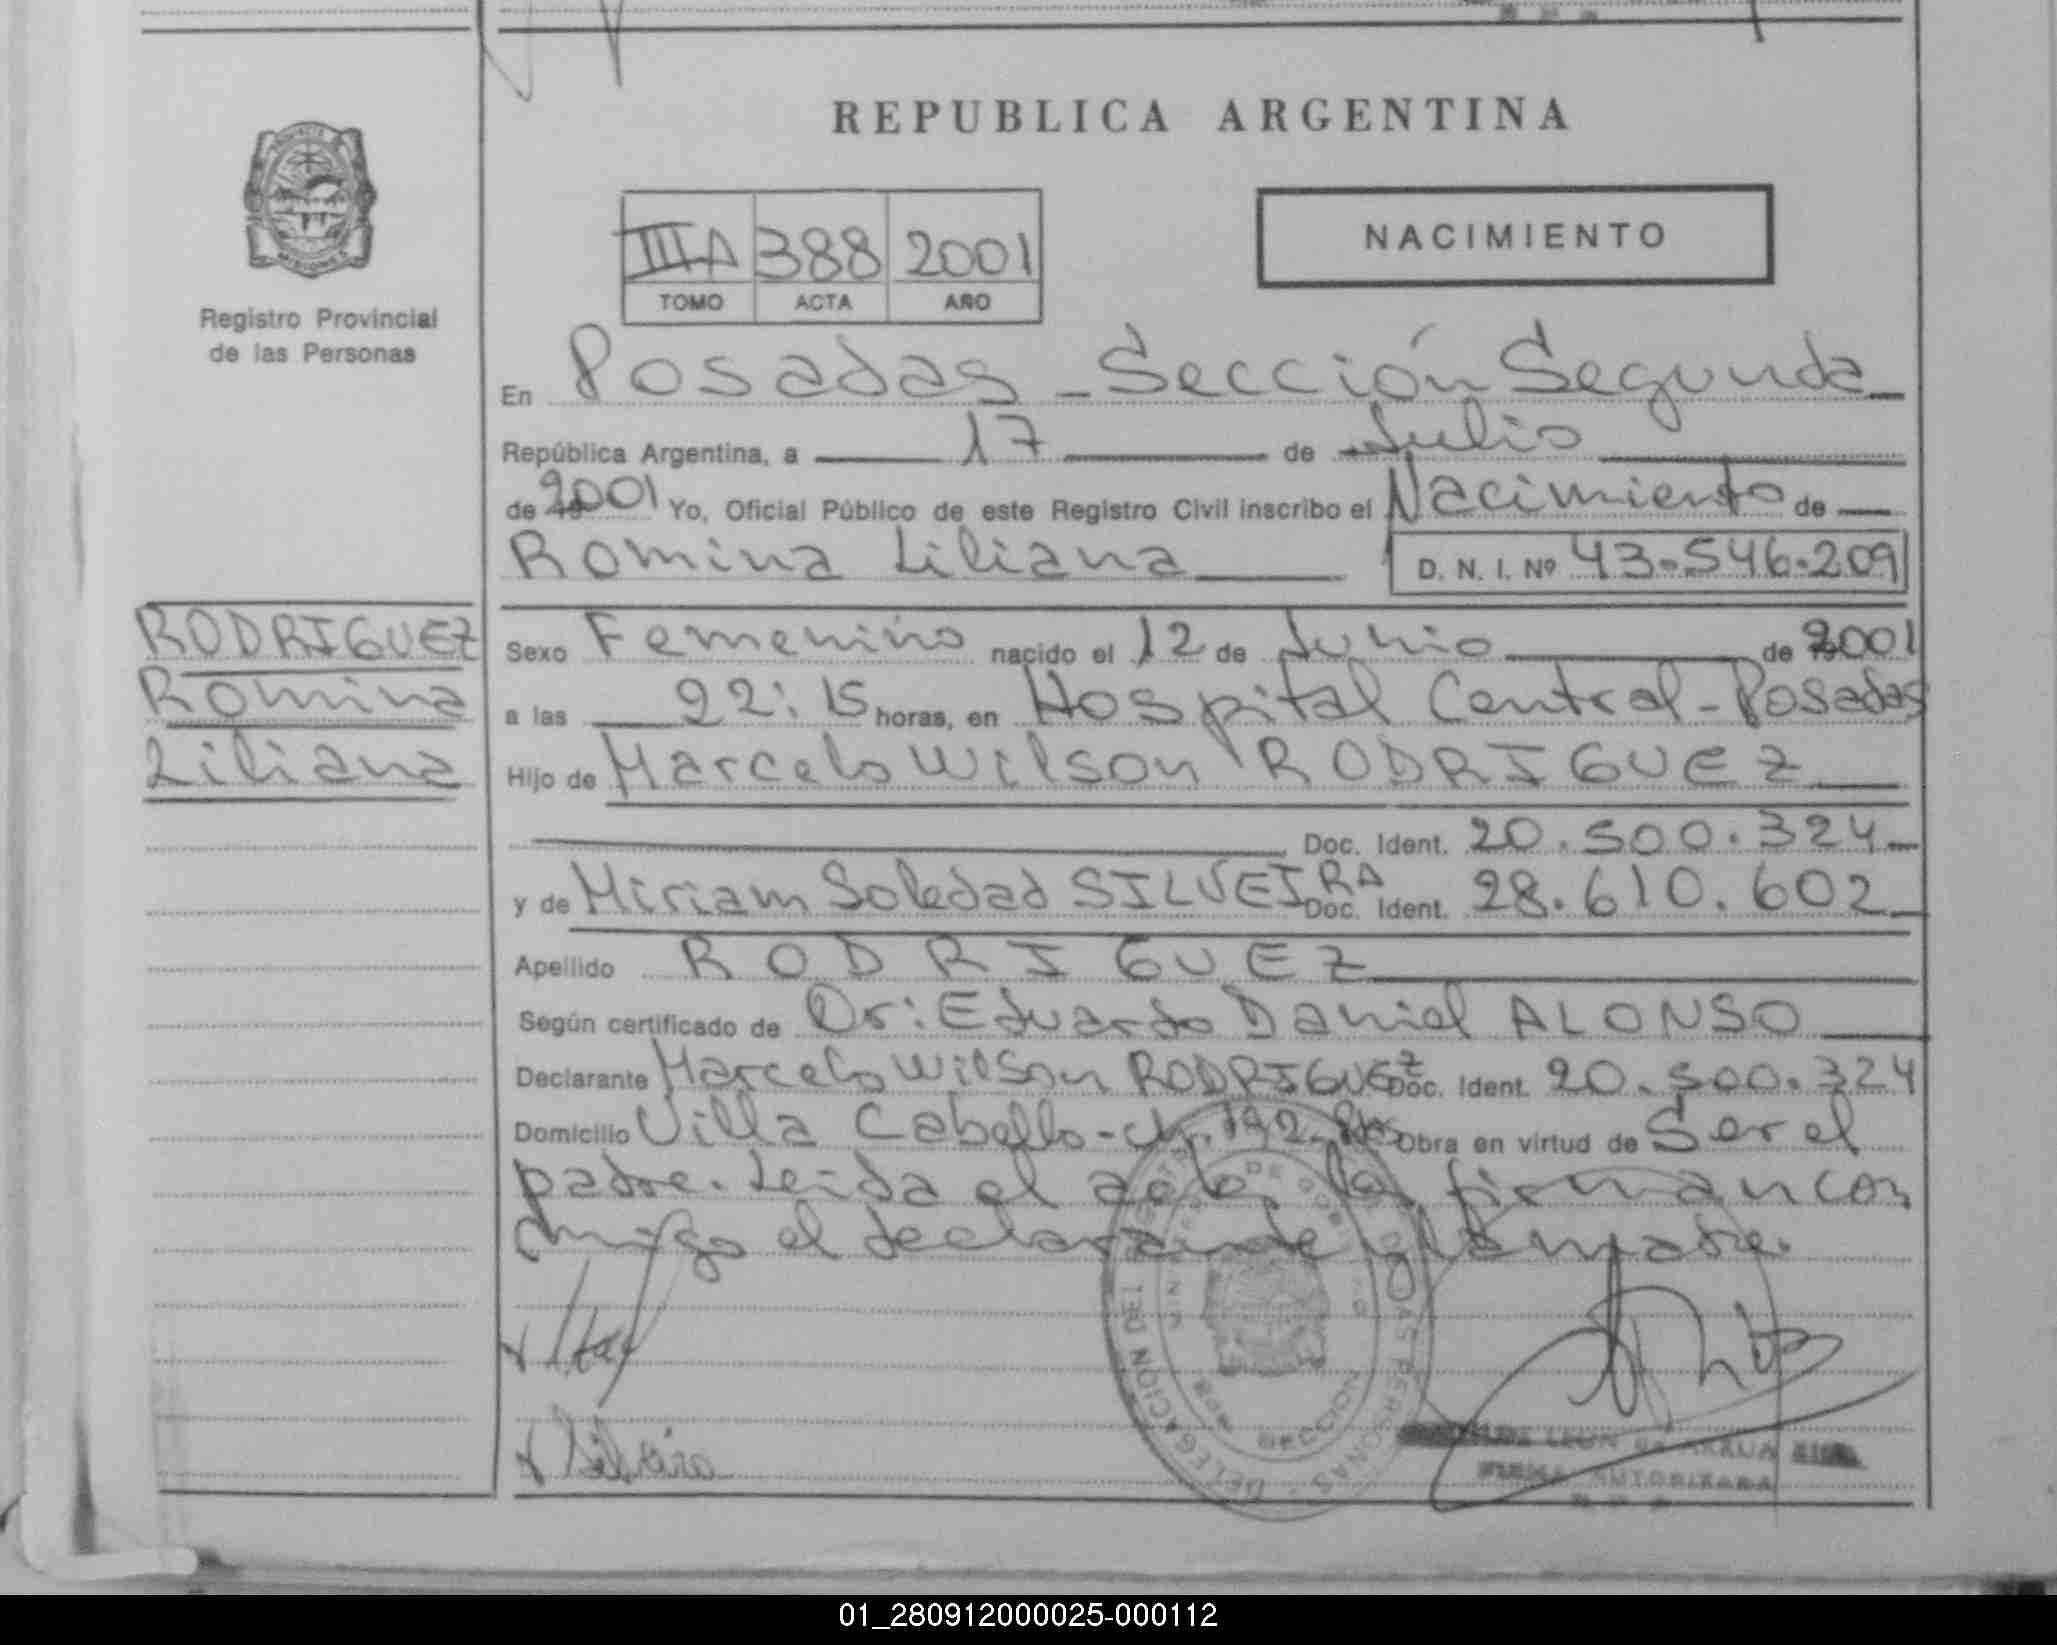 REPUBLICA ARGENTINA
NACIMIENTO
IIIA 388 2001
TOMO ACTA AÑO
Registro Provincial
de las Personas
En Posadas - Sección Segunda
República Argentina, a 17 de Julio
de 2001 Yo, Oficial Público de este Registro Civil inscribo el Nacimiento de
Romina Liliana D. N. I. Nº 43.546.209
RODRIGUEZ
Romina
Liliana
Sexo Femenino nacido el 12 de Junio de 2001
a las 22:15 horas, en Hospital Central - Posadas
Hijo de Marcelo Wilson RODRIGUEZ
Doc. Ident. 20.500.324
y de Miriam Soledad SILVEIRA Doc. Ident. 28.610.602
Apellido RODRIGUEZ
Según certificado de Dr: Eduardo Daniel ALONSO
Declarante Marcelo Wilson RODRIGUEZ Doc. Ident. 20.500.324
Domicilio Villa Cabello - 192 - Obra en virtud de Ser el
padre. Leida el acta, la firman con
migo el declarante y la madre.
Silveira
DELEGACION DE LAS PERSONAS
SECCION
LEON de
FIRMA AUTORIZADA
01_280912000025-000112